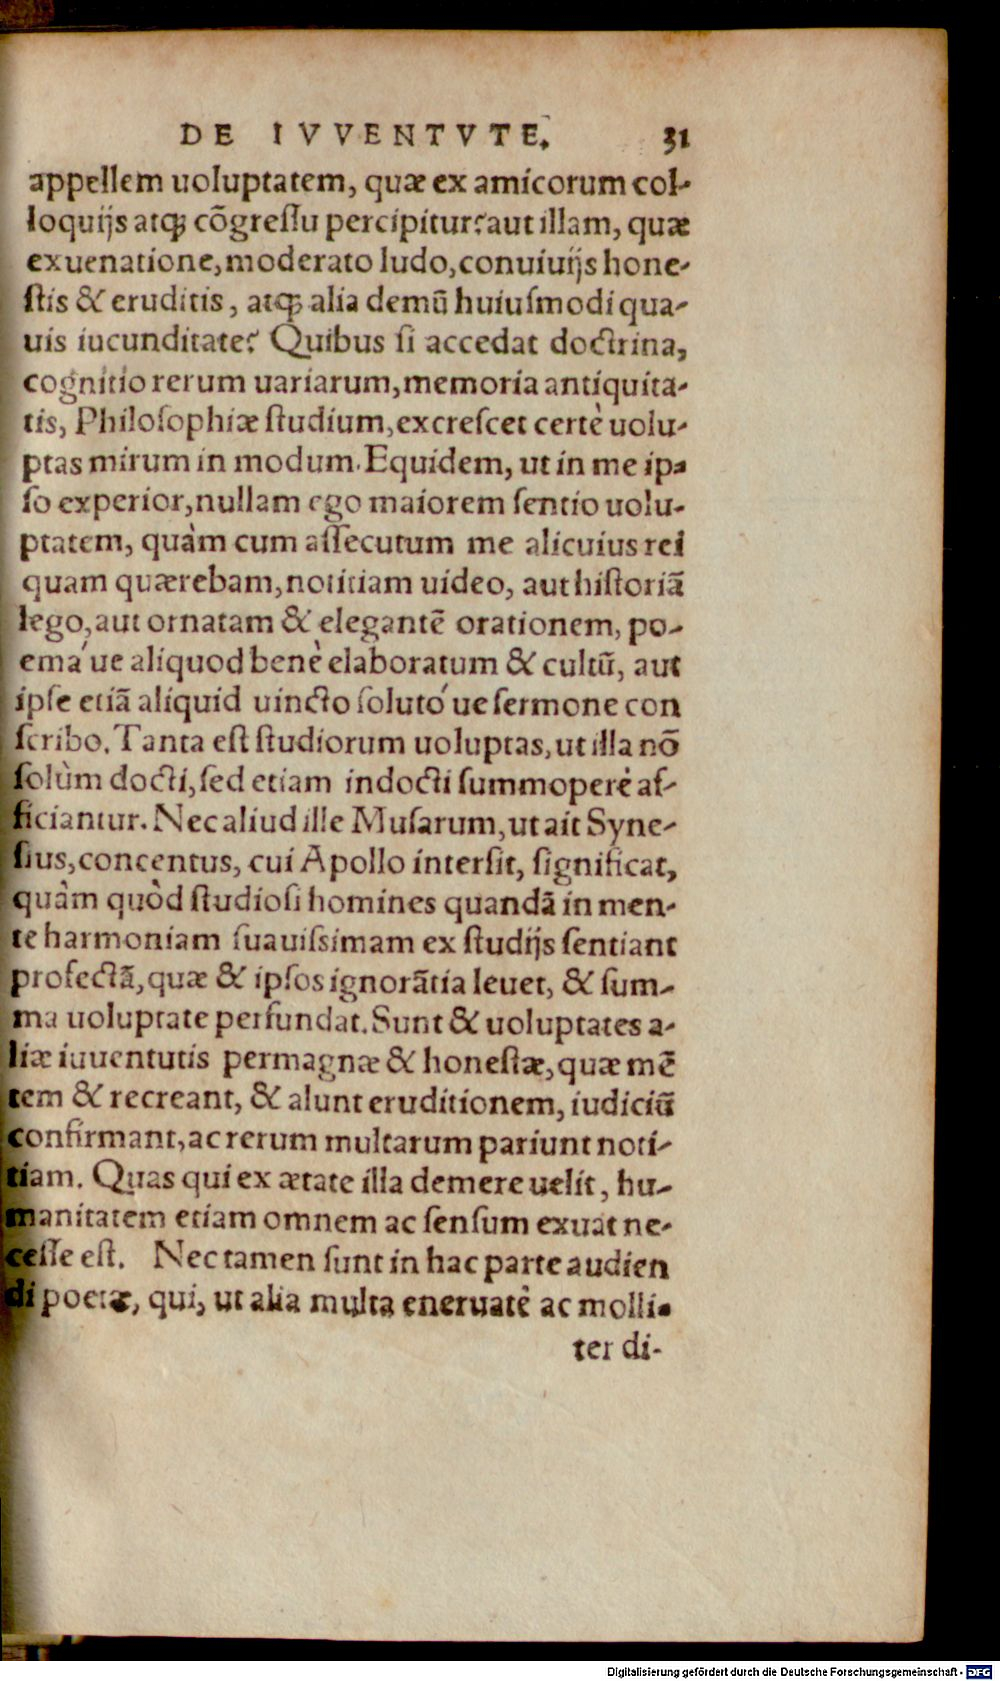 DE IVVENTVTE. 31
appellem uoluptatem, quæ ex amicorum col-
loquijs atq; cõgressu percipitur? aut illam, quæ
ex uenatione, moderato ludo, conuiuijs hone-
stis & eruditis, atq; alia demũ huiusmodi qua-
uis iucunditate? Quibus si accedat doctrina,
cognitio rerum uariarum, memoria antiquita-
tis, Philosophiæ studium, excrescet certè uolu-
ptas mirum in modum. Equidem, ut in me ip-
so experior, nullam ego maiorem sentio uolu-
ptatem, quàm cum assecutum me alicuius rei
quam quærebam, notitiam uideo, aut historiã
lego, aut ornatam & elegantẽ orationem, po-
ema´ue aliquod benè elaboratum & cultũ, aut
ipse etiã aliquid uincto soluto´ue sermone con
scribo. Tanta est studiorum uoluptas, ut illa nõ
solùm docti, sed etiam indocti summoperè af-
ficiantur. Nec aliud ille Musarum, ut ait Syne-
sius, concentus, cui Apollo intersit, significat,
quàm quòd studiosi homines quandã in men-
te harmoniam suauissimam ex studijs sentiant
profectã, quæ & ipsos ignorãtia leuet, & sum-
ma uoluptate perfundat. Sunt & uoluptates a-
liæ iuuentutis permagnæ & honestæ, quæ mẽ
tem & recreant, & alunt eruditionem, iudiciũ
confirmant, ac rerum multarum pariunt noti-
tiam. Quas qui ex ætate illa demere uelit, hu-
manitatem etiam omnem ac sensum exuat ne-
cesse est. Nec tamen sunt in hac parte audien
di poetæ, qui, ut alia multa eneruatè ac molli-
ter di-
Digitalisierung gefördert durch die Deutsche Forschungsgemeinschaft - DFG